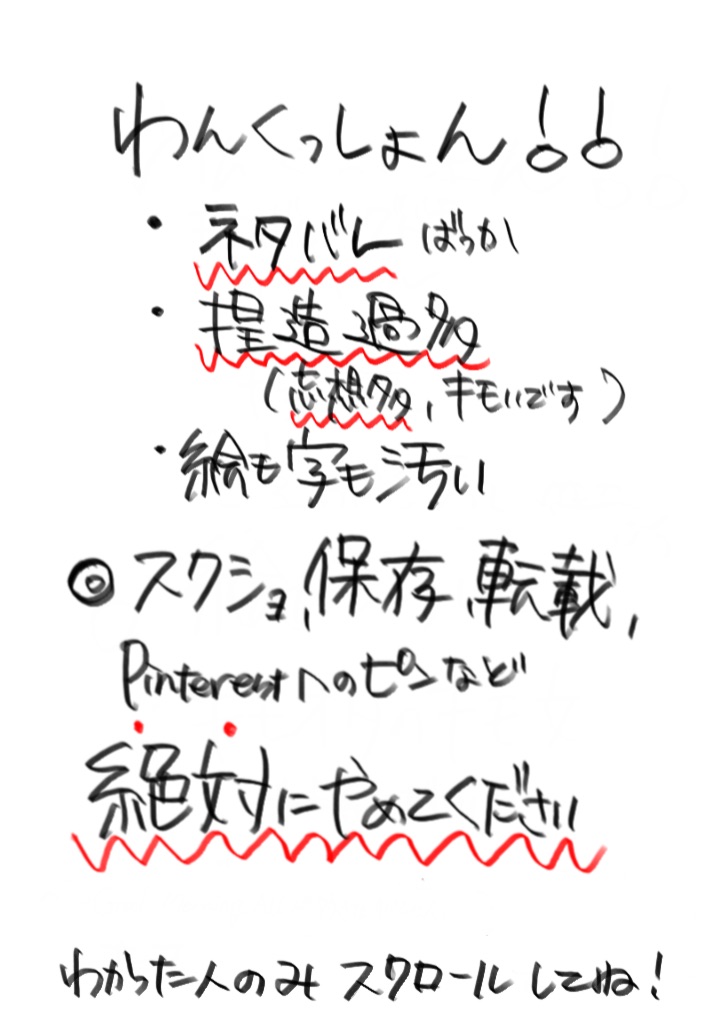 わんくっしょん!!
・ネタバレばっか
・捏造過多
(妄想多々、キモいです)
・絵も字も汚い
◎スクショ、保存、転載、
Pinterestへのピンなど
絶対にやめてください
わかった人のみスクロールしてね!